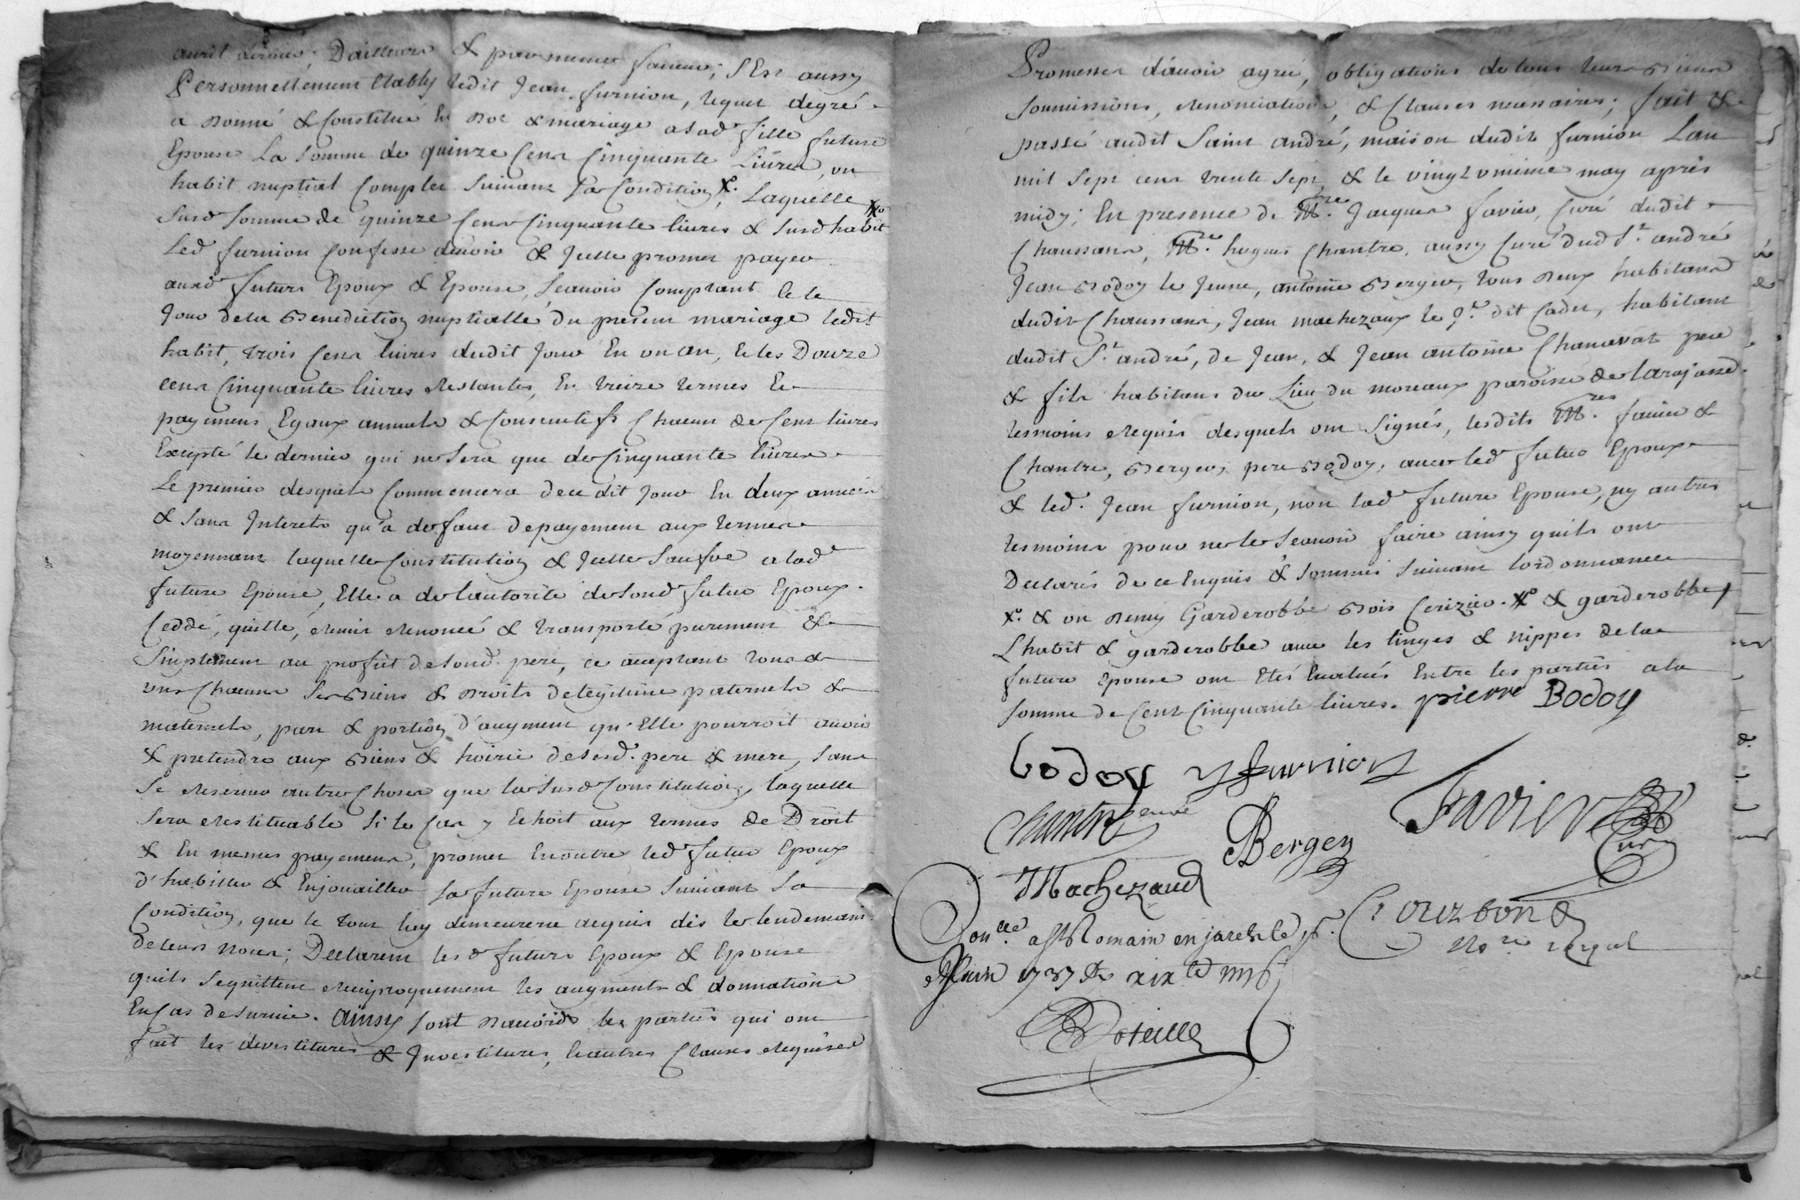 avril dernier; Dailleurs & par mesme faveur; s'Est aussy
Personnellement Etably ledit Jean furnion, lequel degré
a Donné & Constitué En Dot & mariage a lad.e fille future
Epouse La somme de quinze Cens Cinquante Livres, un
habit nuptial Complet suivant sa Condition x.o, Laquelle
susd. somme de quinze Cens Cinquante livres & susd. habit xx.o
Led. furnion Confesse devoir & Jcelle promet payer
ausd. futurs Epoux & Epouse, sçauoir Comptant le
Jour dela Benediction nuptialle du present mariage ledit
habit, trois Cens livres dudit Jour En un an, & les Douze
cens Cinquante livres restantes, En treize termes &
payemens Egaux annuels & Consecutifs Chacun de Cent livres
Excepté le dernier qui ne sera que de Cinquante livres
Le premier desquels Commencera de ce dit Jour En deux années
& sans Jnterets qu'a defaut depayement aux termes
moyennant laquelle Constitution & Jcelle sauve a lad.e
future Epouse, Elle a de lautorité desond. futur Epoux
Ceddé, quitté, remis renoncé & transporté purement &
simplement au profit de sond. pere, ce acceptant tous &
uns Chacuns ses Biens & Droits delegitime paternels &
maternels, part & portion d'augment qu'Elle pourroit auoir
& pretendre aux Biens & hoirie desesd. pere & mere, sans
se reserver autre Chose que la susd. Constitution, laquelle
sera restituable si le Cas y Echoit aux termes de Droit
& En mesmes payemens, promet En outre led. futur Epoux
d'habiller & Enjoailler sa future Epouse suivant sa
Condition, que le tout luy demeurera acquis dès le lendemain
de leurs noces; Declarent lesd. futurs Epoux & Epouse
quils se quittent reciproquement les augments & donnations
En Cas de survie. Ainsy sont D'accord les parties qui ont
fait les devestitures & Jnvestitures, & autres Clauses requises
Promesses d'auoir agréé, obligations de tous leurs Biens
soumissions, renonciations, & Clauses necessaires; fait &
passé audit Saint andré, maison dudit furnion Lan
mil sept cens trente sept, & le vingt unieme may après
midy; En presence de M.re Jacques favier, Curé dudit
Chaussans, M.re hugues Chantre, aussy Curé dud. S.t andré
Jean Bodoy le Jeune, antoine Berger, tous deux habitans
dudit Chaussans, Jean machezaux le J.e dit Cadet, habitant
dudit S.t andré, de Jean, & Jean antoine Chanavat pere
& fils habitans du Lieu du moreaux paroisse de larajasse
tesmoins requis desquels ont signés, lesdits M.res favier &
Chantre, Berger, pere Bodoy, avec led. futur Epoux
& led. Jean furnion, non lad.e future Epouse, ny autres
tesmoins pour ne le sçauoir faire ainsy quils ont
Declarés de ce Enquis & sommés suivant lordonnance
x.o & un demy Garderobbe Bois Cerizier. xx.o & garderobbe
L'habit & garderobbe avec les linges & nippes dela
future Epouse ont Etés Evalués Entre les parties ala
somme de Cent Cinquante livres. pierre Bodoy
bodoy J furnion
Chantre curé Favier
Berger Curé
Machezaud
Con.lle a S.t Romain en jarest le 15. Courbon
Juin 1737
No.re royal
Boteille